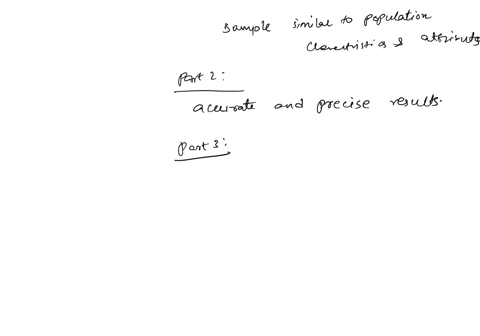 sample similar to population
characteristics & attributes
Part 2:
accurate and precise results.
Part 3: